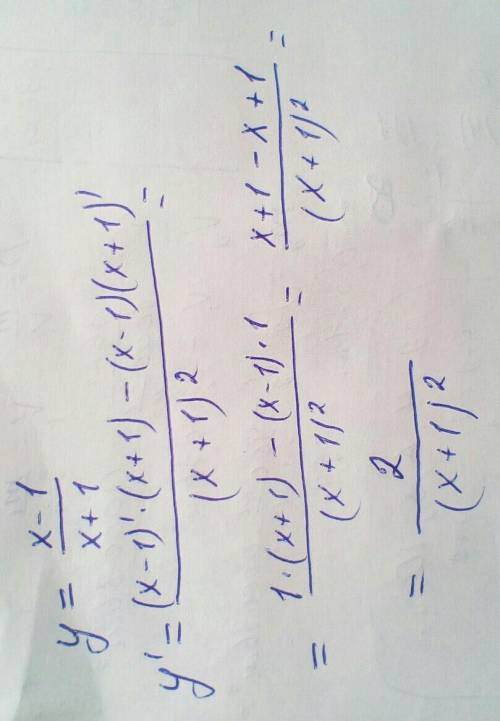 y = \frac{x-1}{x+1}
y' = \frac{(x-1)'·(x+1) - (x-1)(x+1)'}{(x+1)^2} =
= \frac{1·(x+1) - (x-1)·1}{(x+1)^2} = \frac{x+1-x+1}{(x+1)^2} =
= \frac{2}{(x+1)^2}